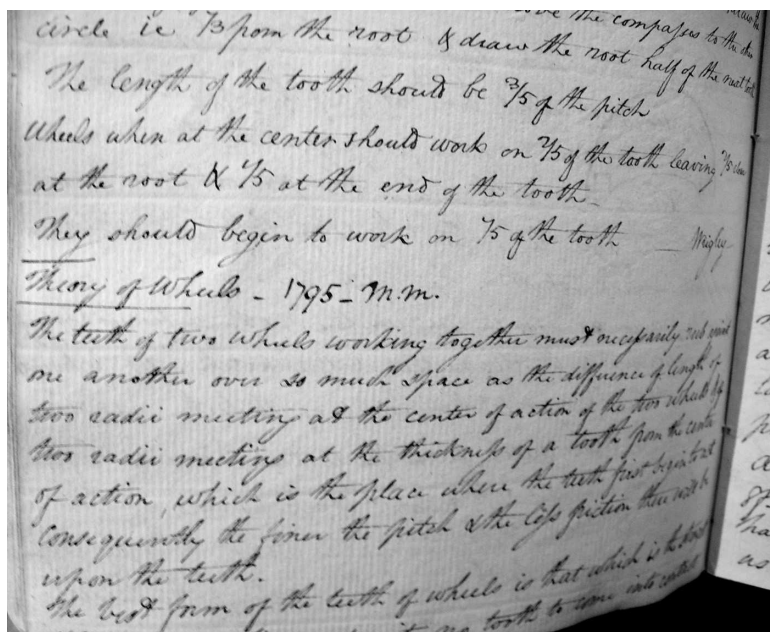 the compaſses to the other
circle ie 1/3 from the root & draw the root half of the next tooth
The length of the tooth should be 3/5 of the pitch
Wheels when at the center should work on 2/5 of the tooth leaving
at the root & 1/5 at the end of the tooth_
They should begin to work on 1/5 of the tooth
Theory of Wheels - 1795 - M.M.
The teeth of two wheels working together must necessarily rub against
one another over so much space as the difference of length of
two radii meeting at the center of action of the two wheels
two radii meeting at the thickneſs of a tooth from the center
of action, which is the place where the teeth first begin to act
Consequently the finer the pitch & the leſs friction there will be
upon the teeth.
The best form of the teeth of wheels is that which is the
no tooth to come into contact